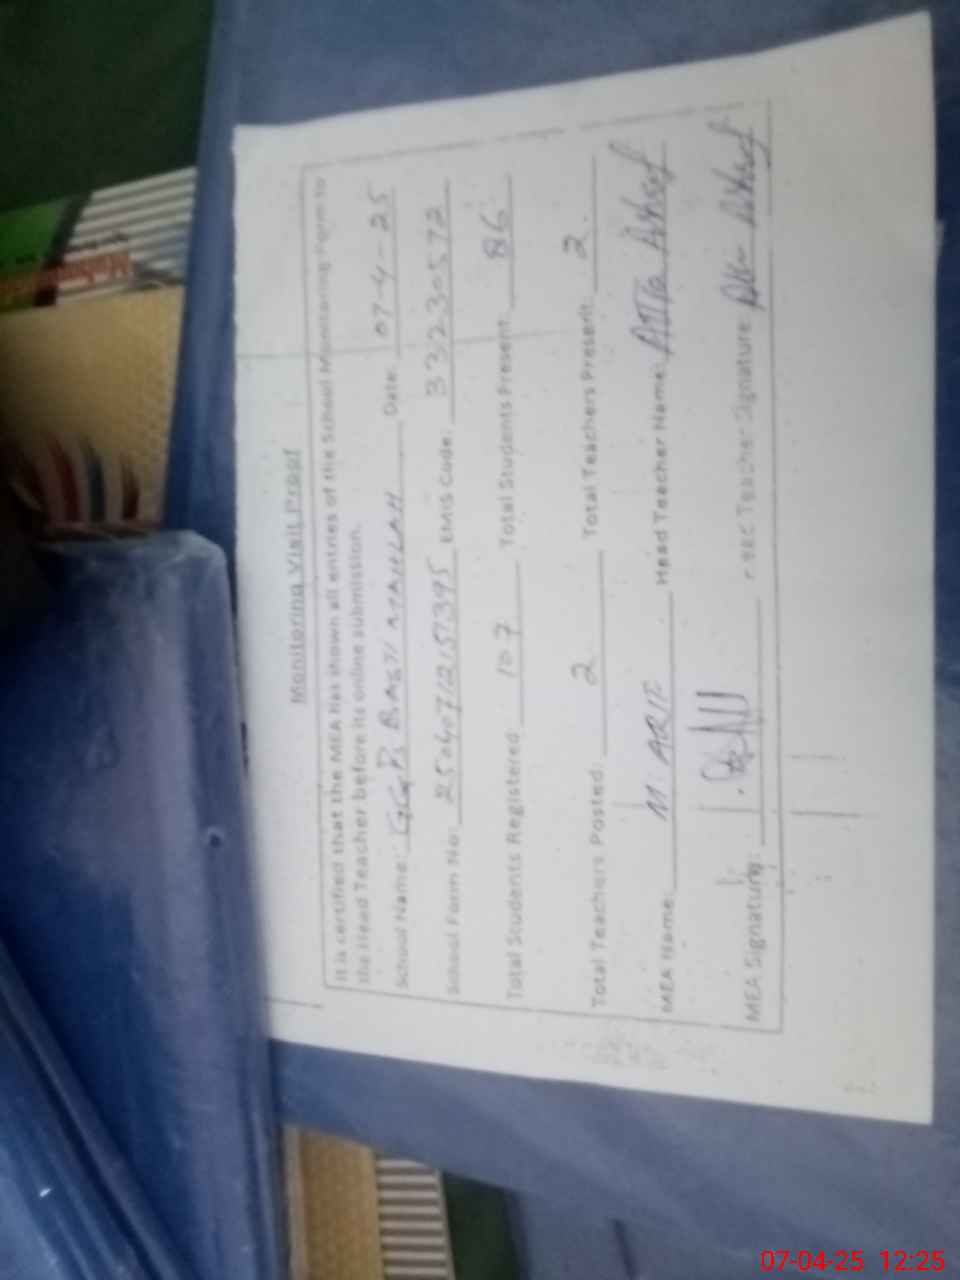 Monitoring Visit Proof
It is certified that the MEA has shown all entries of the School Monitoring Form to
the Head Teacher before its online submission.
School Name: GGPS BASTI MAHLAH Date: 07-4-25
School Form No: EMIS Code: 33230572
Total Students Registered: 107 Total Students Present: 86
Total Teachers Posted: 2 Total Teachers Present: 2
MEA Name: M. ARIF Head Teacher Name: Atta Ashraf
MEA Signature: Teacher Signature
07-04-25 12:25